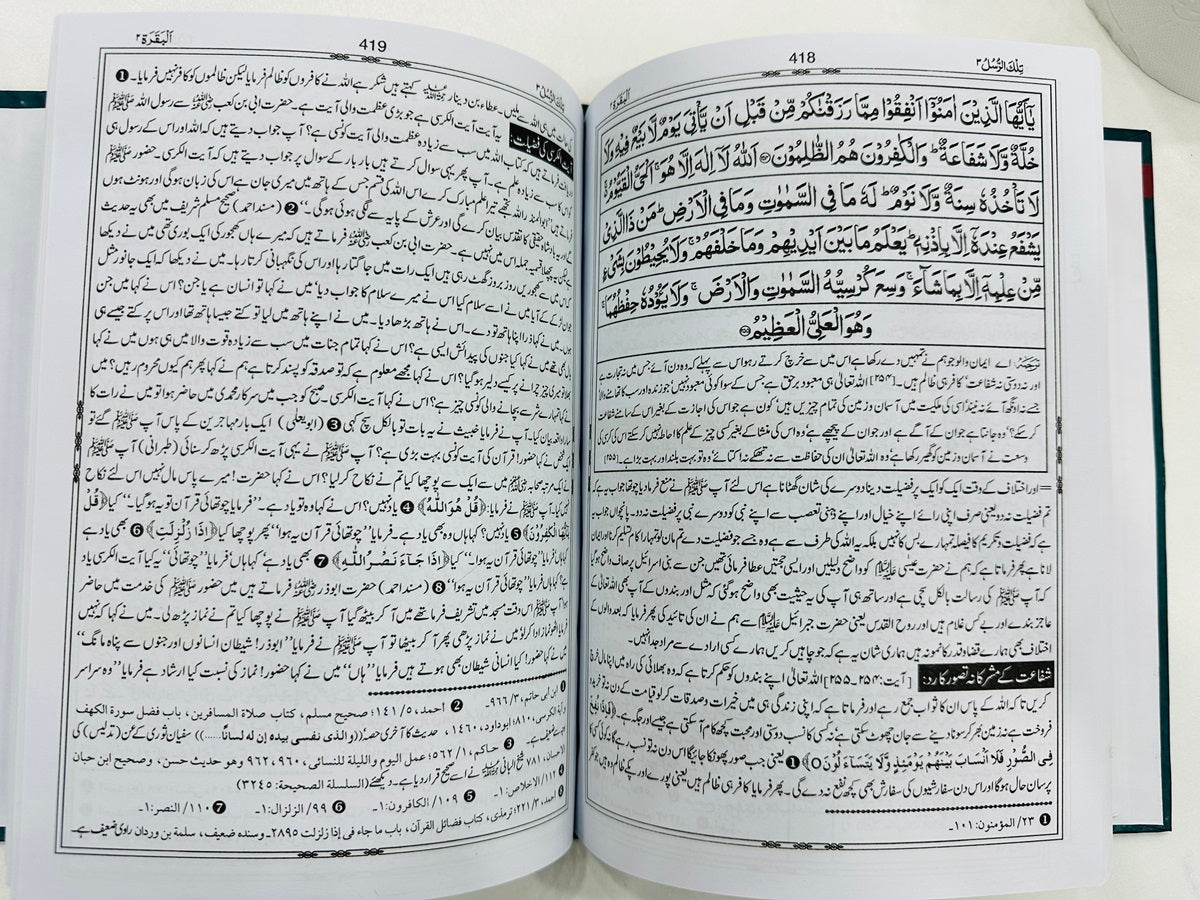 تِلْكَ الرُّسُلُ ٣
418
اَلْبَقَرَة ٢
يٰۤاَيُّهَا الَّذِيْنَ اٰمَنُوْۤا اَنْفِقُوْا مِمَّا رَزَقْنٰكُمْ مِّنْ قَبْلِ اَنْ يَّاْتِيَ يَوْمٌ لَّا بَيْعٌ فِيْهِ وَلَا
خُلَّةٌ وَّلَا شَفَاعَةٌ ؕ وَالْكٰفِرُوْنَ هُمُ الظّٰلِمُوْنَ ﴿۲۵۴﴾ اَللّٰهُ لَاۤ اِلٰهَ اِلَّا هُوَ ۚ اَلْحَيُّ الْقَيُّوْمُ ۬ۚ
لَا تَاْخُذُهٗ سِنَةٌ وَّلَا نَوْمٌ ؕ لَهٗ مَا فِي السَّمٰوٰتِ وَمَا فِي الْاَرْضِ ؕ مَنْ ذَا الَّذِيْ
يَشْفَعُ عِنْدَهٗۤ اِلَّا بِاِذْنِهٖ ؕ يَعْلَمُ مَا بَيْنَ اَيْدِيْهِمْ وَمَا خَلْفَهُمْ ۚ وَلَا يُحِيْطُوْنَ بِشَيْءٍ
مِّنْ عِلْمِهٖۤ اِلَّا بِمَا شَآءَ ۚ وَسِعَ كُرْسِيُّهُ السَّمٰوٰتِ وَالْاَرْضَ ۚ وَلَا يَئُوْدُهٗ حِفْظُهُمَا ۚ
وَهُوَ الْعَلِيُّ الْعَظِيْمُ ﴿۲۵۵﴾
ترجمہ: اے ایمان والو جو ہم نے تمہیں دے رکھا ہے اس میں سے خرچ کرتے رہو اس سے پہلے کہ وہ دن آئے جس میں نہ تجارت ہے
اور نہ دوستی نہ شفاعت' کافر ہی ظالم ہیں۔[۲۵۴] اللہ تعالیٰ ہی معبود برحق ہے' جس کے سوا کوئی معبود نہیں' جو زندہ اور سب کا تھامنے والا
جسے نہ اونگھ آئے نہ نیند' اسی کی ملکیت میں آسمان و زمین کی تمام چیزیں ہیں' کون ہے جو اس کی اجازت کے بغیر اس کے سامنے شفاعت
کر سکے؟' وہ جانتا ہے جو ان کے آگے ہے اور جو ان کے پیچھے ہے' وہ اس کی منشا کے بغیر کسی چیز کے علم کا احاطہ نہیں کر سکتے' اس کی کرسی کی
وسعت نے آسمان و زمین کو گھیر رکھا ہے' وہ اللہ تعالیٰ ان کی حفاظت سے نہ تھکے نہ اکتائے' وہ تو بہت بلند اور بہت بڑا ہے۔[۲۵۵]
= اور اختلاف کے وقت ایک کو ایک پر فضیلت دینا دوسرے کی شان گھٹانا ہے اس لئے آپ ﷺ نے منع فرما دیا چوتھا جواب یہ ہے کہ
تم فضیلت نہ دو یعنی صرف اپنی رائے اپنے خیال اور اپنے ذہنی تعصب سے اپنے نبی کو دوسرے نبی پر فضیلت نہ دو۔ پانچواں جواب یہ
ہے کہ فضیلت و تکریم کا فیصلہ تمہارے بس کا نہیں بلکہ یہ اللہ کی طرف سے ہے وہ جسے جو فضیلت دے تم مان لو تمہارا کام تسلیم کرنا اور ایمان
لانا ہے پھر فرماتا ہے کہ ہم نے حضرت عیسیٰ علیہ السلام کو واضح دلیلیں اور ایسی حجتیں عطا فرمائی تھیں جن سے بنی اسرائیل پر صاف واضح ہو گیا
کہ آپ ﷺ کی رسالت بالکل سچی ہے اور ساتھ ہی آپ کی یہ حیثیت بھی واضح ہو گئی کہ مثل اور بندوں کے آپ بھی اللہ تعالیٰ کے
عاجز بندے اور بے کس غلام ہیں اور روح القدس یعنی حضرت جبرائیل علیہ السلام سے ہم نے ان کی تائید کی پھر فرمایا کہ بعد والوں کے
اختلاف بھی ہمارے قضا و قدر کا نمونہ ہیں ہماری شان یہ ہے کہ جو چاہیں کریں ہمارے کسی ارادے سے مراد جدا نہیں۔
شفاعت کے مشرکانہ تصور کا رد: [آیت: ۲۵۴-۲۵۵] اللہ تعالیٰ اپنے بندوں کو حکم کرتا ہے کہ وہ بھلائی کی راہ میں اپنا مال خرچ
کریں تا کہ اللہ کے پاس ان کا ثواب جمع رہے اور فرماتا ہے کہ اپنی زندگی ہی میں خیرات و صدقات کر لو قیامت کے دن نہ تو خرید و
فروخت ہے نہ زمین بھر کر سونا دینے سے جان چھوٹ سکتی ہے نہ کسی کا نسب دوستی اور محبت کچھ کام آ سکتی ہے جیسے اور جگہ ہے۔ ﴿فَاِذَا نُفِخَ
فِی الصُّوْرِ فَلَآ اَنْسَابَ بَيْنَهُمْ يَوْمَئِذٍ وَّلَا يَتَسَآءَ لُوْنَ ○﴾ ❶ یعنی جب صور پھونکا جائیگا اس دن نہ تو نسب رہے گا نہ کوئی کسی کا
پرسان حال ہو گا اور اس دن سفارشیوں کی سفارش بھی کچھ نفع نہ دے گی۔ پھر فرمایا کافر ہی ظالم ہیں یعنی پورے اور پکے ظالم وہ ہیں جو کفر
❶ ٢٣/ المؤمنون: ١٠١۔
اَلْبَقَرَة ٢
419
تِلْكَ الرُّسُلُ ٣
اللہ سے ملیں۔ عطاء بن دینار کہتے ہیں شکر ہے اللہ نے کافروں کو ظالم فرمایا لیکن ظالموں کو کافر نہیں فرمایا۔ ❶
آیت الکرسی کی فضیلت: یہ آیت آیت الکرسی ہے جو بڑی عظمت والی آیت ہے۔ حضرت ابی بن کعب سے رسول اللہ ﷺ
فرماتے ہیں کہ کتاب اللہ میں سب سے زیادہ عظمت والی آیت کونسی ہے؟ آپ جواب دیتے ہیں کہ اللہ اور اس کے رسول ہی
کو اس کا سب سے زیادہ علم ہے۔ آپ پھر یہی سوال کرتے ہیں بار بار کے سوال پر جواب دیتے ہیں کہ آیت الکرسی۔ حضور ﷺ
فرماتے ہیں ''ابوالمنذر اللہ تجھے تیرا علم مبارک کرے اس اللہ کی قسم جس کے ہاتھ میں میری جان ہے اس کی زبان ہو گی اور ہونٹ ہوں
گے اور یہ بادشاہ حقیقی کا تقدس بیان کرے گی اور عرش کے پایہ سے لگی ہوئی ہو گی۔'' ❷ (مسند احمد) صحیح مسلم شریف میں بھی یہ حدیث
ہے لیکن یہ پچھلا قسمیہ جملہ اس میں نہیں ہے۔ حضرت ابی بن کعب فرماتے ہیں کہ میرے ہاں کھجور کی ایک بوری تھی میں نے دیکھا
کہ اس میں سے کھجوریں روز بروز گھٹ رہی ہیں ایک رات میں جاگتا رہا اور اس کی نگہبانی کرتا رہا۔ میں نے دیکھا کہ ایک جانور مثل
جوان لڑکے کے آیا میں نے اسے سلام کیا اس نے میرے سلام کا جواب دیا' میں نے کہا تو انسان ہے یا جن؟ اس نے کہا میں جن
ہوں۔ میں نے کہا ذرا اپنا ہاتھ تو دے۔ اس نے ہاتھ بڑھا دیا۔ میں نے اپنے ہاتھ میں لیا تو کتے جیسا ہاتھ تھا اور اس پر کتے جیسے ہی
بال تھے میں نے کہا کیا جنوں کی پیدائش ایسی ہے؟ اس نے کہا تمام جنات میں سب سے زیادہ قوت والا میں ہی ہوں میں نے
کہا بھلا تو میری چیز چرانے پر کیسے دلیر ہو گیا؟ اس نے کہا مجھے معلوم ہے کہ تو صدقہ کو پسند کرتا ہے ہم نے کہا پھر ہم کیوں محروم رہیں؟ میں
نے کہا تمہارے شر سے بچانے والی کونسی چیز ہے؟ اس نے کہا آیت الکرسی۔ صبح کو جب میں سرکار محمدی میں حاضر ہوا تو میں نے رات کا
سارا واقعہ بیان کیا۔ آپ نے فرمایا خبیث نے یہ بات تو بالکل سچ کہی ❸ (ابو یعلی) ایک بار مہاجرین کے پاس آپ ﷺ گئے تو
ایک شخص نے کہا حضور! قرآن کی آیت کونسی بہت بڑی ہے؟ آپ ﷺ نے یہی آیت الکرسی پڑھ کر سنائی (طبرانی) آپ ﷺ
نے ایک مرتبہ صحابہ میں سے ایک سے پوچھا کیا تم نے نکاح کر لیا؟ اس نے کہا حضرت! میرے پاس مال نہیں اس لئے نکاح
نہیں کیا۔ آپ ﷺ نے فرمایا: ﴿قُلْ هُوَ اللّٰهُ﴾ ❹ یاد نہیں؟ اس نے کہا وہ تو یاد ہے۔'' فرمایا چوتھائی قرآن تو یہ ہو گیا۔'' کیا ﴿قُلْ
يٰٓاَيُّهَا الْكٰفِرُوْنَ﴾ ❺ یاد نہیں؟ کہا ہاں وہ بھی یاد ہے۔ فرمایا ''چوتھائی قرآن یہ ہوا'' پھر پوچھا کیا ﴿اِذَا زُلْزِلَتِ﴾ ❻ بھی یاد ہے
کہا ہاں فرمایا ''چوتھائی قرآن یہ ہوا۔'' کیا ﴿اِذَا جَآءَ نَصْرُ اللّٰهِ﴾ ❼ بھی یاد ہے' کہا ہاں فرمایا ''چوتھائی'' یہ کیا آیت الکرسی یاد
ہے؟ کہا ہاں فرمایا ''چوتھائی قرآن یہ ہوا'' ❽ (مسند احمد) حضرت ابوذر فرماتے ہیں میں حضور ﷺ کی خدمت میں حاضر
ہوا آپ ﷺ اس وقت مسجد میں تشریف فرما تھے میں آ کر بیٹھ گیا آپ ﷺ نے پوچھا کیا تم نے نماز پڑھ لی۔ میں نے کہا کہ نہیں
فرمایا اٹھو نماز ادا کر لو میں نے نماز پڑھی پھر آ کر بیٹھا تو آپ ﷺ نے فرمایا ''ابوذر! شیطان انسانوں اور جنوں سے پناہ مانگ''
میں نے کہا حضور! کیا انسانی شیطان بھی ہوتے ہیں فرمایا ''ہاں'' میں نے کہا حضور! نماز کی نسبت کیا ارشاد ہے فرمایا ''وہ سراسر
❶ ابن ابی حاتم، ٣/ ٩٦٦۔ ❷ أحمد، ٥/ ١٤١؛ صحیح مسلم، کتاب صلاة المسافرین، باب فضل سورة الکهف
وآیة الکرسی، ٨١٠؛ ابوداود، ١٤٦٠، حدیث کا آخری حصہ ((والذی نفسی بیده إن له لسانًا......)) سفیان ثوری کے عن (تدلیس) کی
وجہ سے ضعیف ہے۔ ❸ حاکم، ١/ ٥٦٢؛ عمل الیوم واللیلة للنسائی، ٩٦٠، ٩٦٢ وهو حدیث حسن، وصحیح ابن حبان
الاحسان، ٧٨١ شیخ البانی نے اسے صحیح قرار دیا ہے۔ دیکھئے (السلسلة الصحیحة: ٣٢٤٥)
❹ ١١٢/ الاخلاص: ١۔ ❺ ١٠٩/ الکافرون: ١۔ ❻ ٩٩/ الزلزال: ١۔ ❼ ١١٠/ النصر: ١۔
أحمد، ٣/ ٢٢١؛ ترمذی، کتاب فضائل القرآن، باب ما جاء فی إذا زلزلت ٢٨٩٥۔ وسنده ضعیف، سلمة بن وردان راوی ضعیف ہے۔